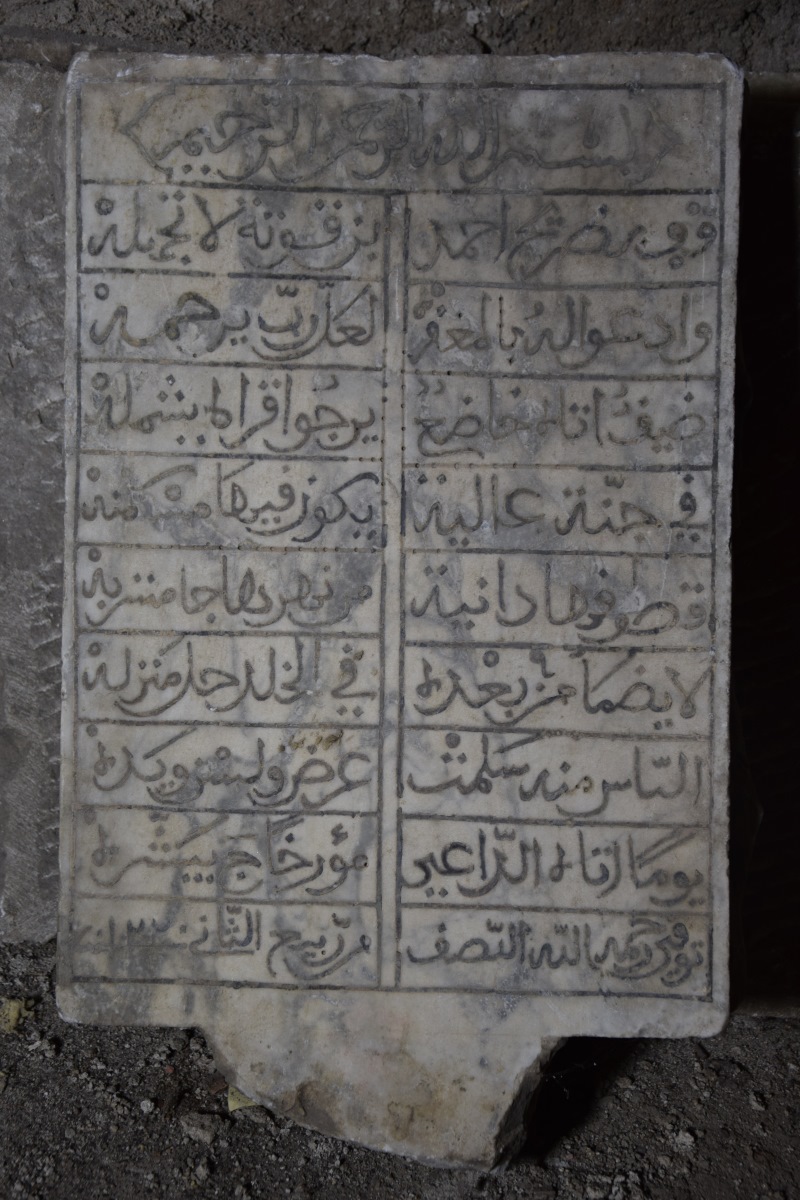 بسم الله الرحمن الرحيم
قف بضريح احمد بن قوتة لا تجهله
وادعو اله بالمغفرة لعلّ ربّ يرحمه
ضيفٌ اتاه خاضعٌ يرجو اقراه بشمله
في جنّة عالية يكون فيها مسكنه
قطوفها دانية من نهرها جا مشربه
لا يضمأ من بعده في الخلد حل منزله
النّاس منه سلمتْ عرض ولسن ويده
يوماً اتاه الدّاعي مؤرخاً يبشّره
توفي رحمه الله النّصف من ربيع الثّاني